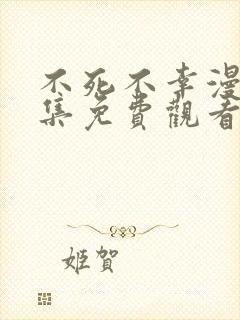 不死不幸漫
集免費觀看
姬賀